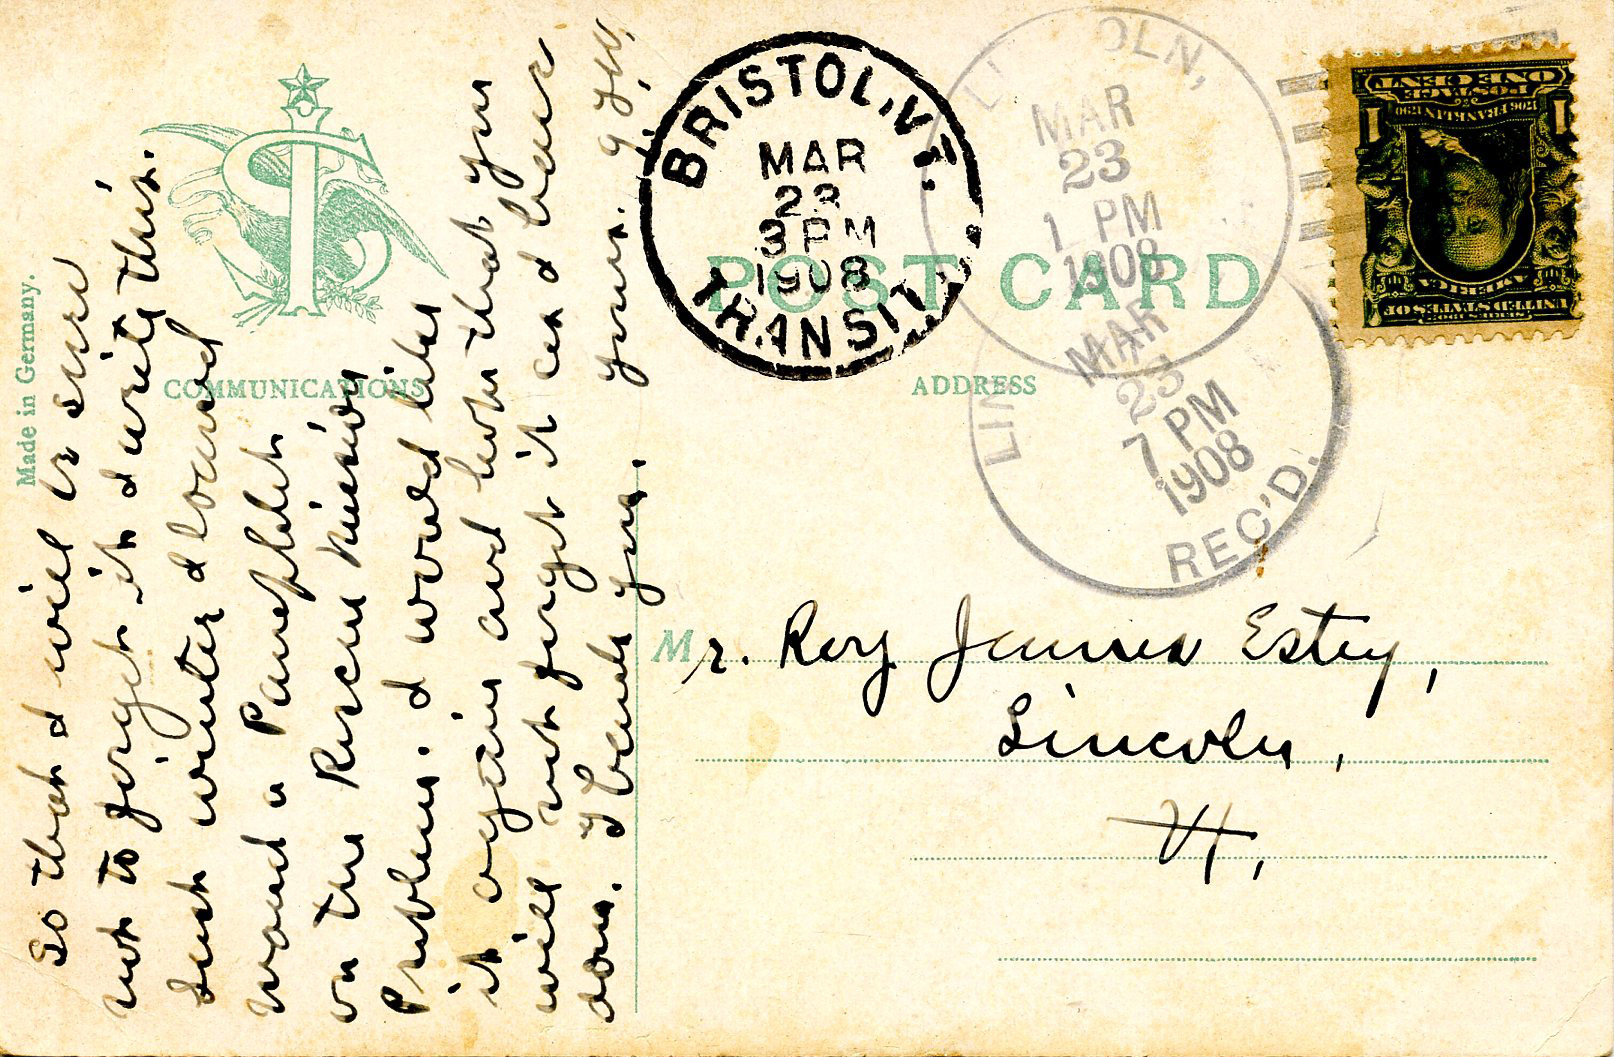 Made in Germany.
COMMUNICATIONS
So that I will be sure
not to forget it I write this.
Last winter I loaned
a Pamphlet
on the
Problem. I would like
it again and hope that you
will not forget it as I have
done. I thank you. Yours.
BRISTOL, VT.
MAR
23
3 PM
1908
TRANSIT
LINCOLN,
MAR
23
1 PM
1908
MAR
23
7 PM
1908
REC'D.
POST CARD
ADDRESS
UNITED STATES OF AMERICA
1706 FRANKLIN 1790
POSTAGE
ONE CENT
1 1
Mr. Roy James Estey,
Lincoln,
Vt.